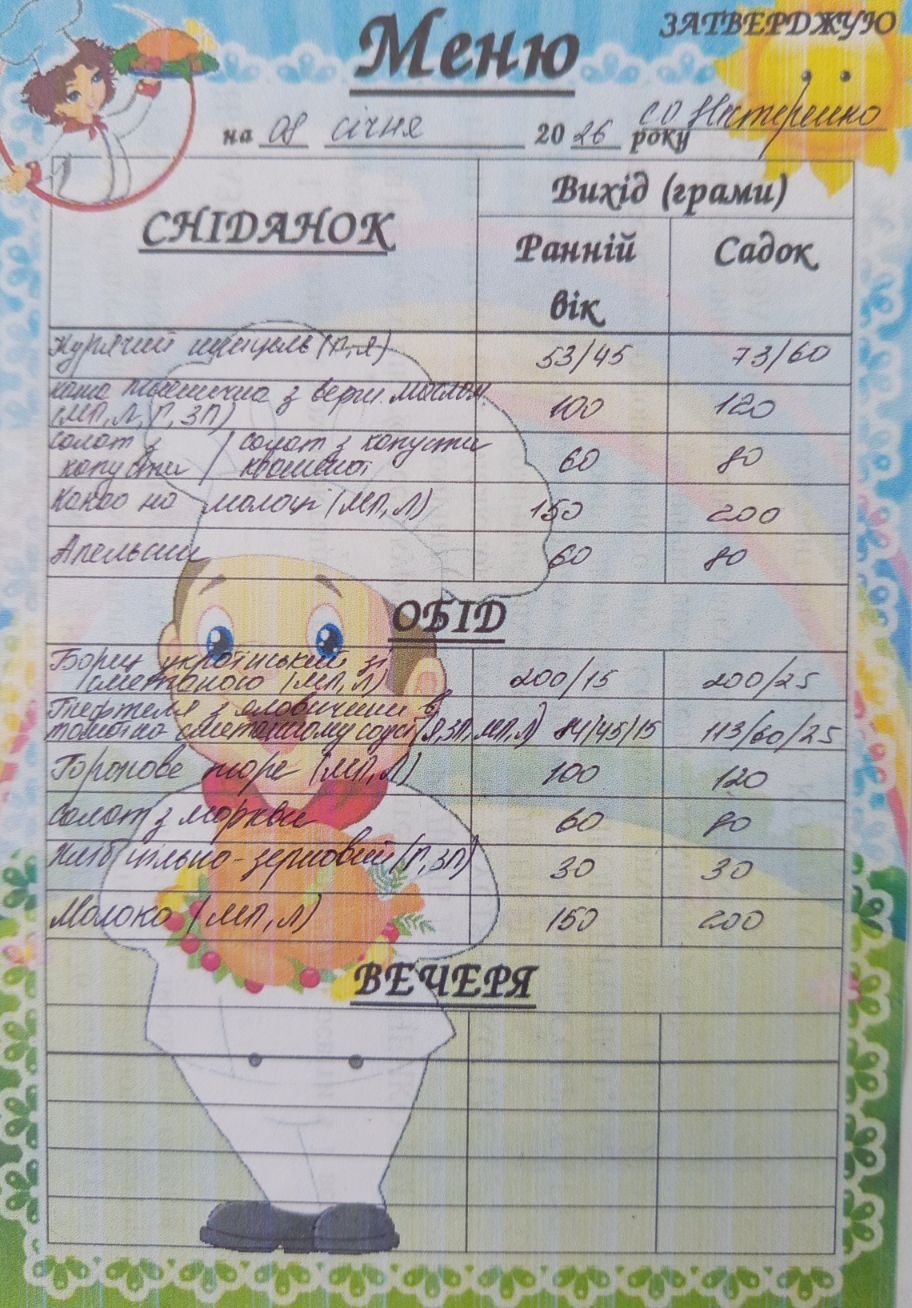 ЗАТВЕРДЖУЮ
Меню
на 08 січня 2026 року
СНІДАНОК
Вихід (грами)
Ранній вік
Садок
Курячий шніцель (Г, Я) 53/45 73/60
каша пшенична з верш. маслом
(МП, Л, Г, ЗП) 100 120
салат з / салат з капусти
капусти / квашеної 60 80
Какао на молоці (МП, Л) 150 200
Апельсин 60 80
ОБІД
Борщ український зі
сметаною (МП, Л) 200/15 200/25
Тюфтеля з яловичини в
томатно сметанному соусі (Я, ЗП, МП, Л) 84/45/15 113/60/25
Горохове пюре (МП, Л) 100 120
Салат з моркви 60 80
Хліб цільно-зерновий (Г, ЗП) 30 30
Молоко (МП, Л) 150 200
ВЕЧЕРЯ